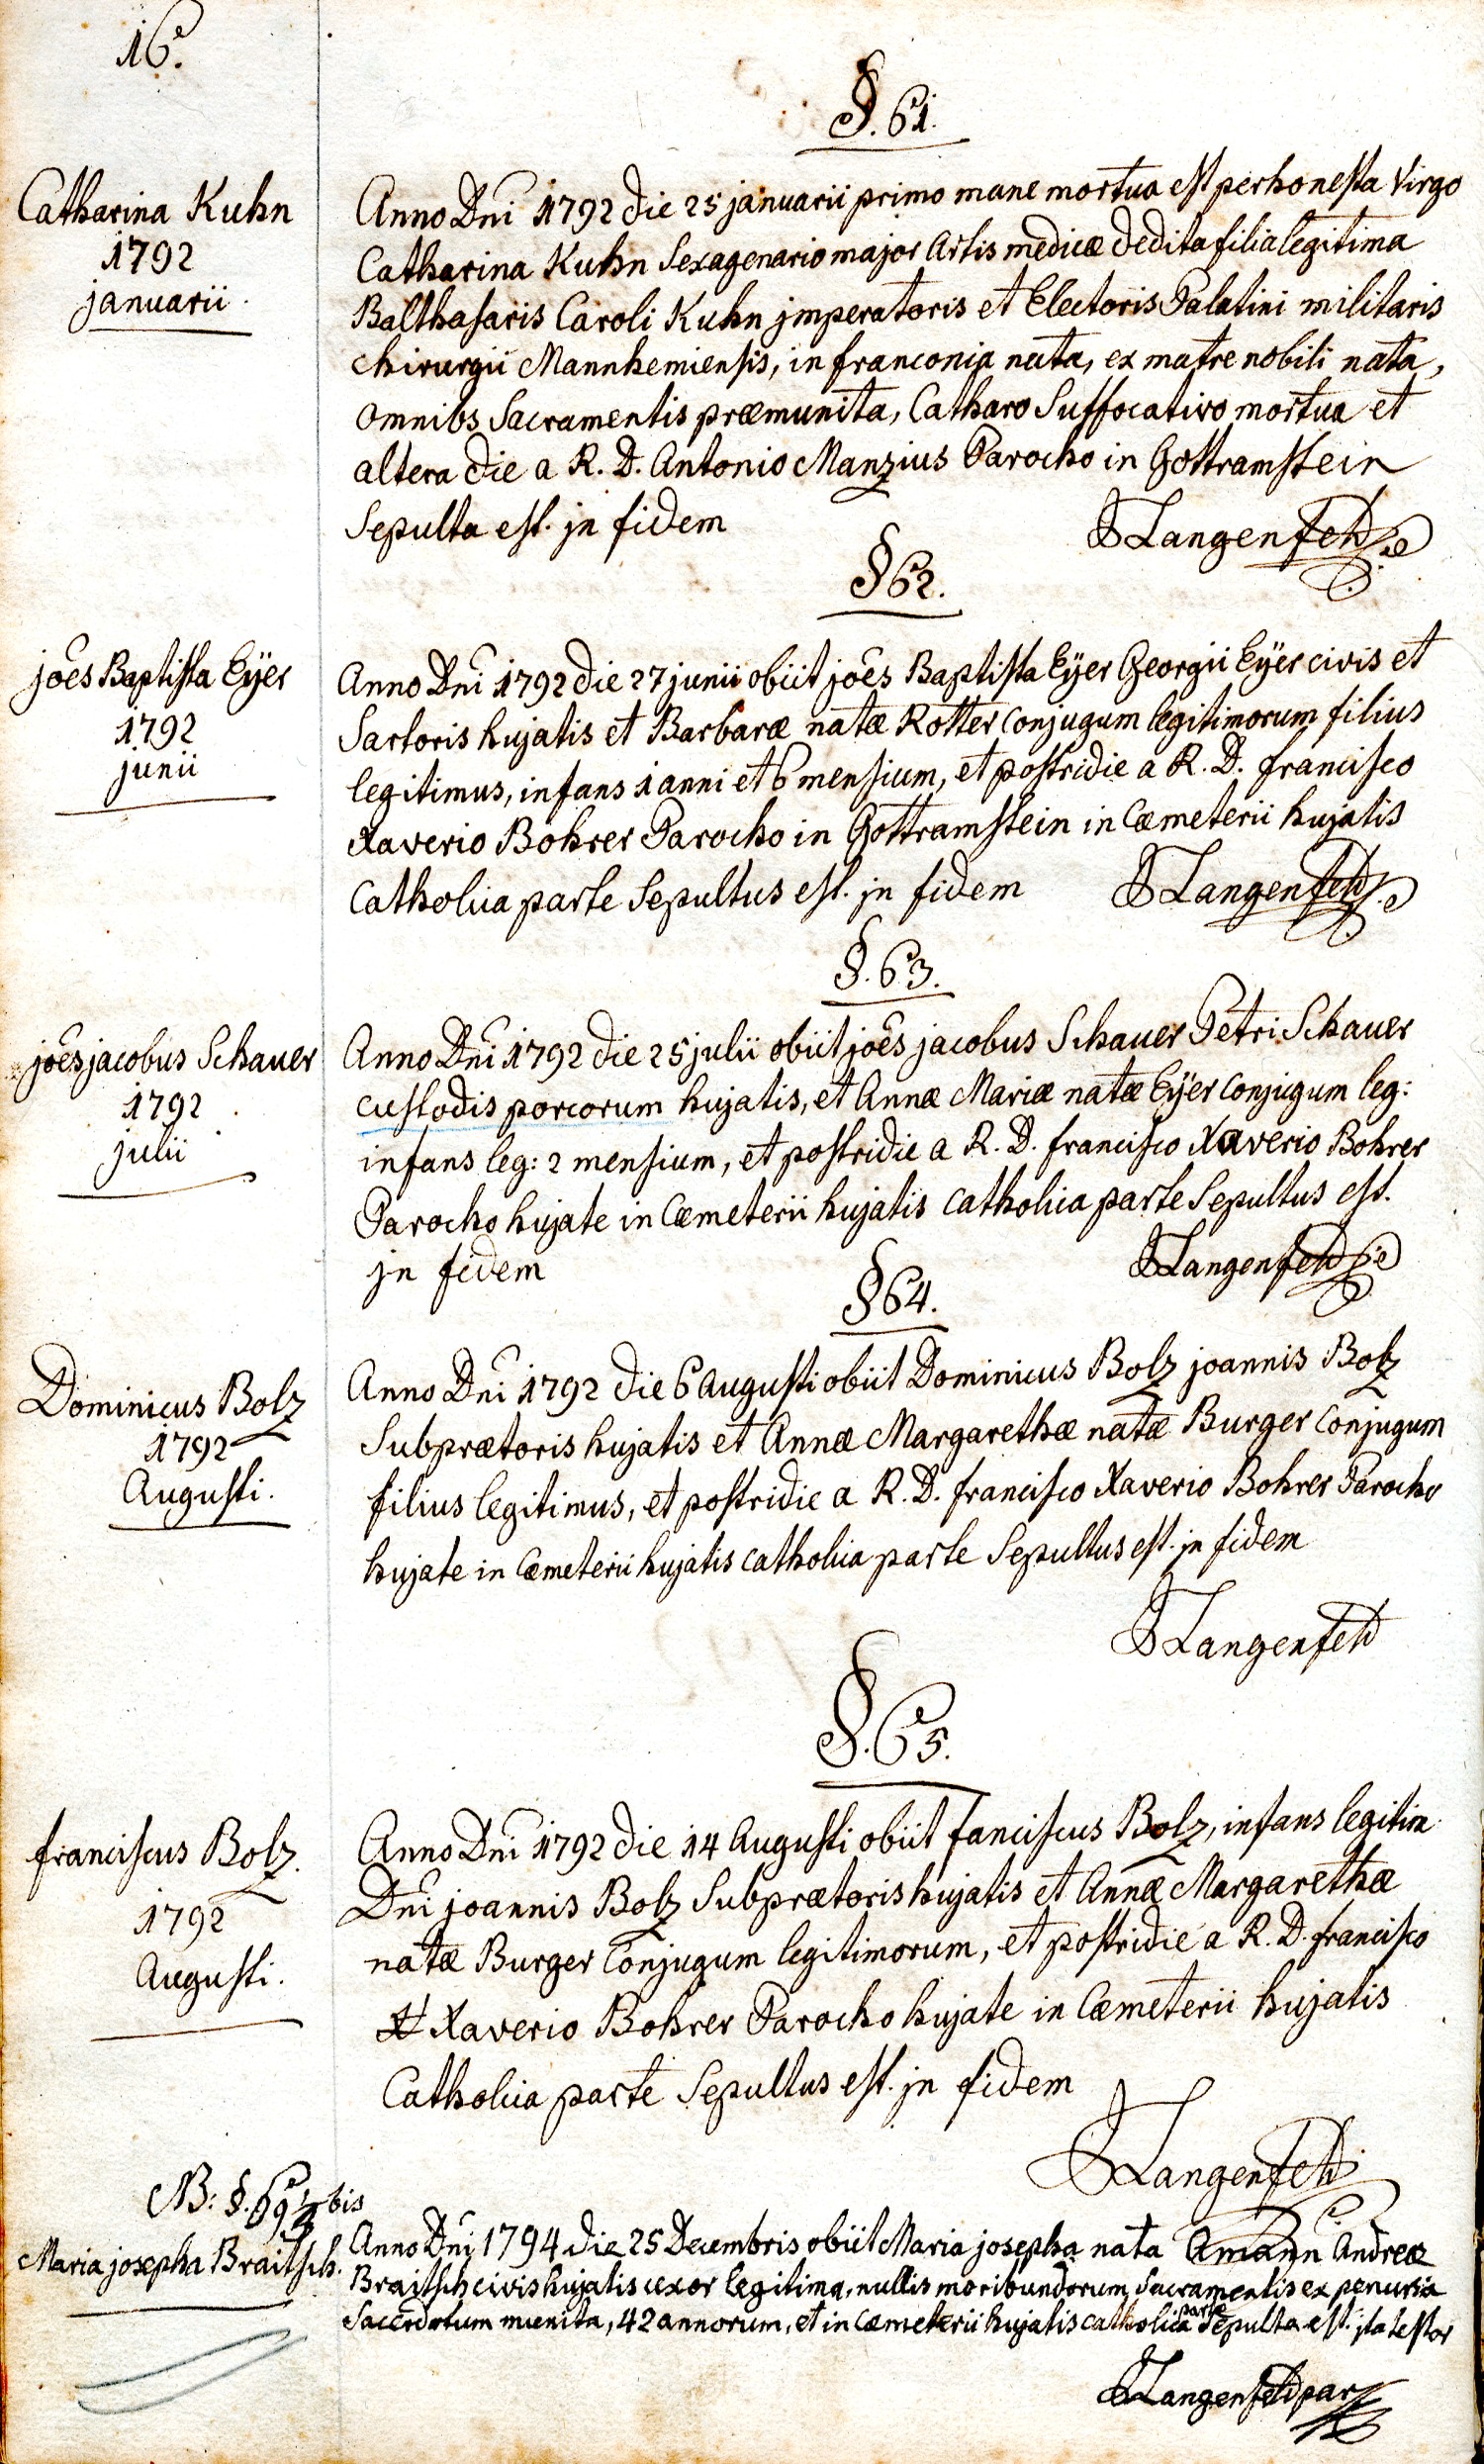 16.
§. 61.
Catharina Kuhn
1792
januarii.
Anno Dni 1792 die 25 januarii primo mane mortua est perhonesta Virgo
Catharina Kuhn Sexagenario major Artis medicæ dedita filia legitima
Balthasaris Caroli Kuhn jmperatoris et Electoris Palatini militaris
Chirurgii Mannhemiensis, in franconia nata, ex matre nobili nata,
omnibs Sacramentis præmunita, Catharo Suffocativo mortua et
altera die a R. D. Antonio Manzius Parocho in Gottramstein
Sepulta est. jn fidem
Langenfeld
§ 62.
joês Baptista Eÿer
1792
junii
Anno Dni 1792 die 27 junii obiit joês Baptista Eÿer Georgii Eÿer civis et
Sartoris hujatis et Barbaræ natæ Rotter Conjugum legitimorum filius
legitimus, infans 1 anni et 6 mensium, et postridie a R. D. francisco
Xaverio Bohrer Parocho in Gottramstein in Cæmeterii hujatis
Catholica parte Sepultus est. jn fidem
Langenfeld
§. 63.
joês jacobus Schauer
1792
julii
Anno Dni 1792 die 25 julii obiit joês jacobus Schauer Petri Schauer
custodis porcorum hujatis, et Annæ Mariæ natæ Eÿer Conjugum leg:
infans leg: 2 mensium, et postridie a R. D. francisco Xaverio Bohrer
Parocho hujate in Cæmeterii hujatis catholica parte Sepultus est.
jn fidem
Langenfeld
§ 64.
Dominicus Bolz
1792
Augusti.
Anno Dni 1792 die 6 Augusti obiit Dominicus Bolz joannis Bolz
Subprætoris hujatis et Annæ Margarethæ natæ Burger Conjugum
filius legitimus, et postridie a R. D. francisco Xaverio Bohrer Parocho
hujate in Cæmeterii hujatis catholica parte Sepultus est. jn fidem
Langenfeld
§. 65.
franciscus Bolz.
1792
Augusti.
Anno Dni 1792 die 14 Augusti obiit fanciscus Bolz, infans legitim
Dni joannis Bolz Subprætoris hujatis et Annæ Margarethæ
natæ Burger Conjugum legitimorum, et postridie a R. D. francisco
Xaverio Bohrer Parocho hujate in Cæmeterii hujatis
Catholica parte Sepultus est. jn fidem
Langenfeld
NB: §. 69 bis
Maria josepha Braitsch.
Anno Dni 1794 die 25 Decembris obiit Maria josepha nata Amann Andreæ
Braitsch civis hujatis uxor legitima, nullis moribundorum Sacramentis ex penuria
Sacerdotum munita, 42 annorum, et in Cæmeterii hujatis catholica parte Sepulta est. jta testor
Langenfeld par